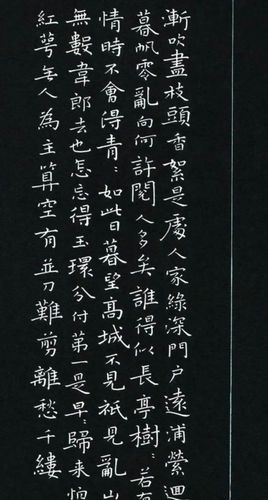 漸吹盡枝頭香絮是處人家綠深門戶遠浦縈迴
暮帆零亂向何許閱人多矣誰得似長亭樹:若有
情時不會得青:如此日暮望高城不見祇見亂山
無數韋郎去也怎忘得玉環分付第一是早:歸來怕
紅萼无人為主算空有並刀難剪離愁千縷